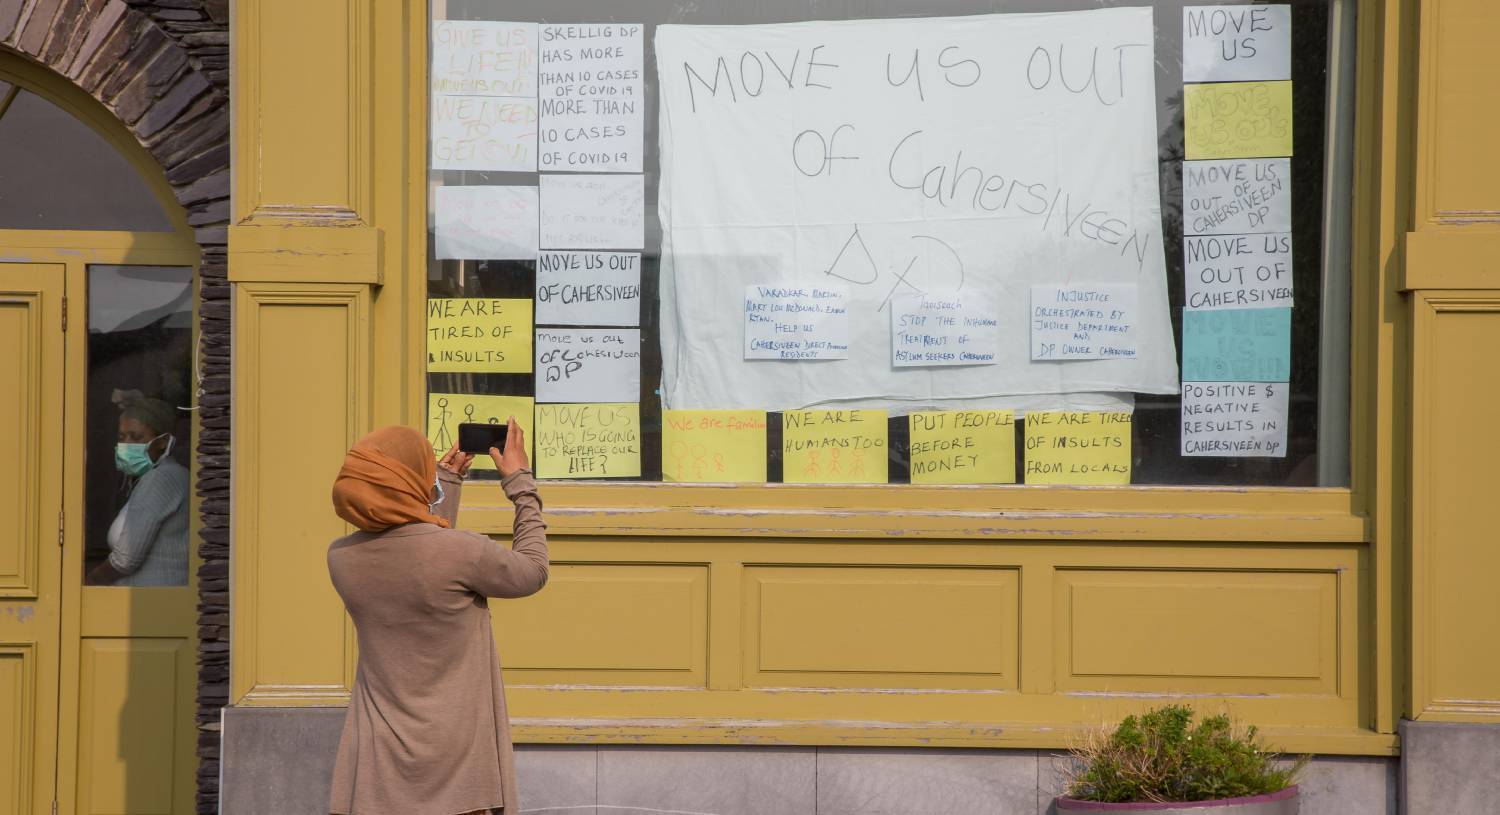 GIVE US
LIFE!!
MOVE US OUT
WE NEED
TO
GET OUT
SKELLIG DP
HAS MORE
THAN 10 CASES
OF COVID 19
MORE THAN
10 CASES
OF COVID 19
MOVE US OUT
OF CAHERSIVEEN
WE ARE
TIRED OF
INSULTS
move us out
DP
MOVE US
WHO IS GOING
TO REPLACE OUR
LIFE?
MOVE US OUT
OF CahersIVEEN
VARADKAR, MARTIN,
MARY LOU McDONALD, EAMON
RYAN.
HELP US
CAHERSIVEEN DIRECT PROVISION
RESIDENTS
Taoiseach
STOP THE INHUMANE
TREATMENT OF
ASYLUM SEEKERS CAHERSIVEEN
INJUSTICE
ORCHESTRATED BY
JUSTICE DEPARTMENT
AND
DP OWNER CAHERSIVEEN
We are families
WE ARE
HUMANS TOO
PUT PEOPLE
BEFORE
MONEY
WE ARE TIRED
OF INSULTS
FROM LOCALS
MOVE
US
MOVE
US OUT
MOVE US
OUT OF
CAHERSIVEEN
DP
MOVE US
OUT OF
CAHERSIVEEN
MOVE
US
POSITIVE $
NEGATIVE
RESULTS IN
CAHERSIVEEN DP